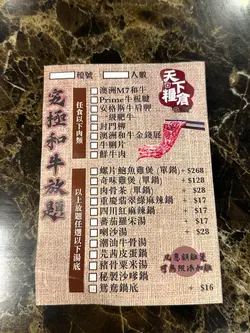 檯號 人數
天下
糧倉
究極和牛放題
任食以下肉類
澳洲M7和牛
Prime牛板腱
安格斯牛肩胛
一級肥牛
封門柳
澳洲和牛金錢展
牛脷片
鮮牛肉
以上放題任選以下湯底
螺片鮑魚雞煲 (單鍋) + $268
奇味雞煲 (單鍋) + $128
肉骨茶 (單鍋) + $28
重慶翡翠椒麻辣鍋 + $17
四川紅麻辣鍋 + $17
蕃茄羅宋湯 + $17
喇沙湯 + $28
潮汕牛骨湯
芫茜皮蛋鍋
豬骨粟米湯
秘製沙嗲鍋
鴛鴦鍋底 + $16
凡惠顧雞煲
可無限添加雞